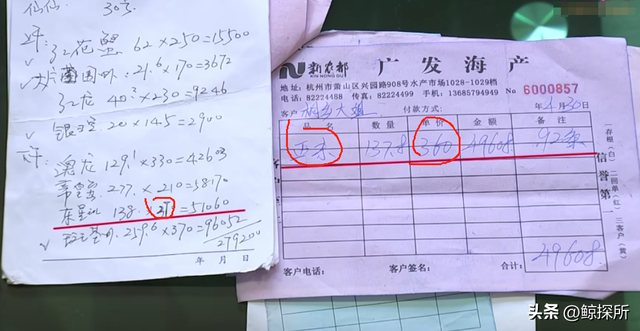 30
红花蟹 62×250=15500
21.6×170=3672
红龙 40.2×230=9246
20×145=2900
澳龙 129.1×330=42603
帝皇蟹 277×210=58170
东星斑 138×370=51060
259.6×370=96052
279200
年 月 日
新农都
XIN NONG DU
广发海产
地址:杭州市萧山区兴园路908号水产市场1028-1029档
电话:82224488 传真:82224499 手机:13685794949
№ 6000857
客户 付款方式: 年 4月30日
品名 数量 单价 金额 备注
137.8 360 49608 92条
49608
客户电话: 客户签名: 合计:
存根(白)二回单(红)三客户
信誉第一
头条 @鲸探所